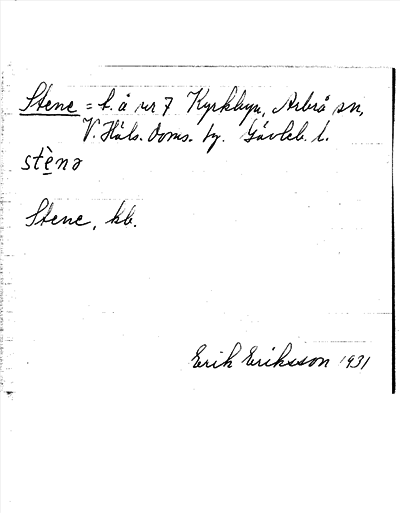 Stene = t. å nr 7 Kyrkbyn, Arbrå sn,
V. Häls. doms. hg. Gävleb. l.
stènə
Stene, kb.
Erik Eriksson 1931